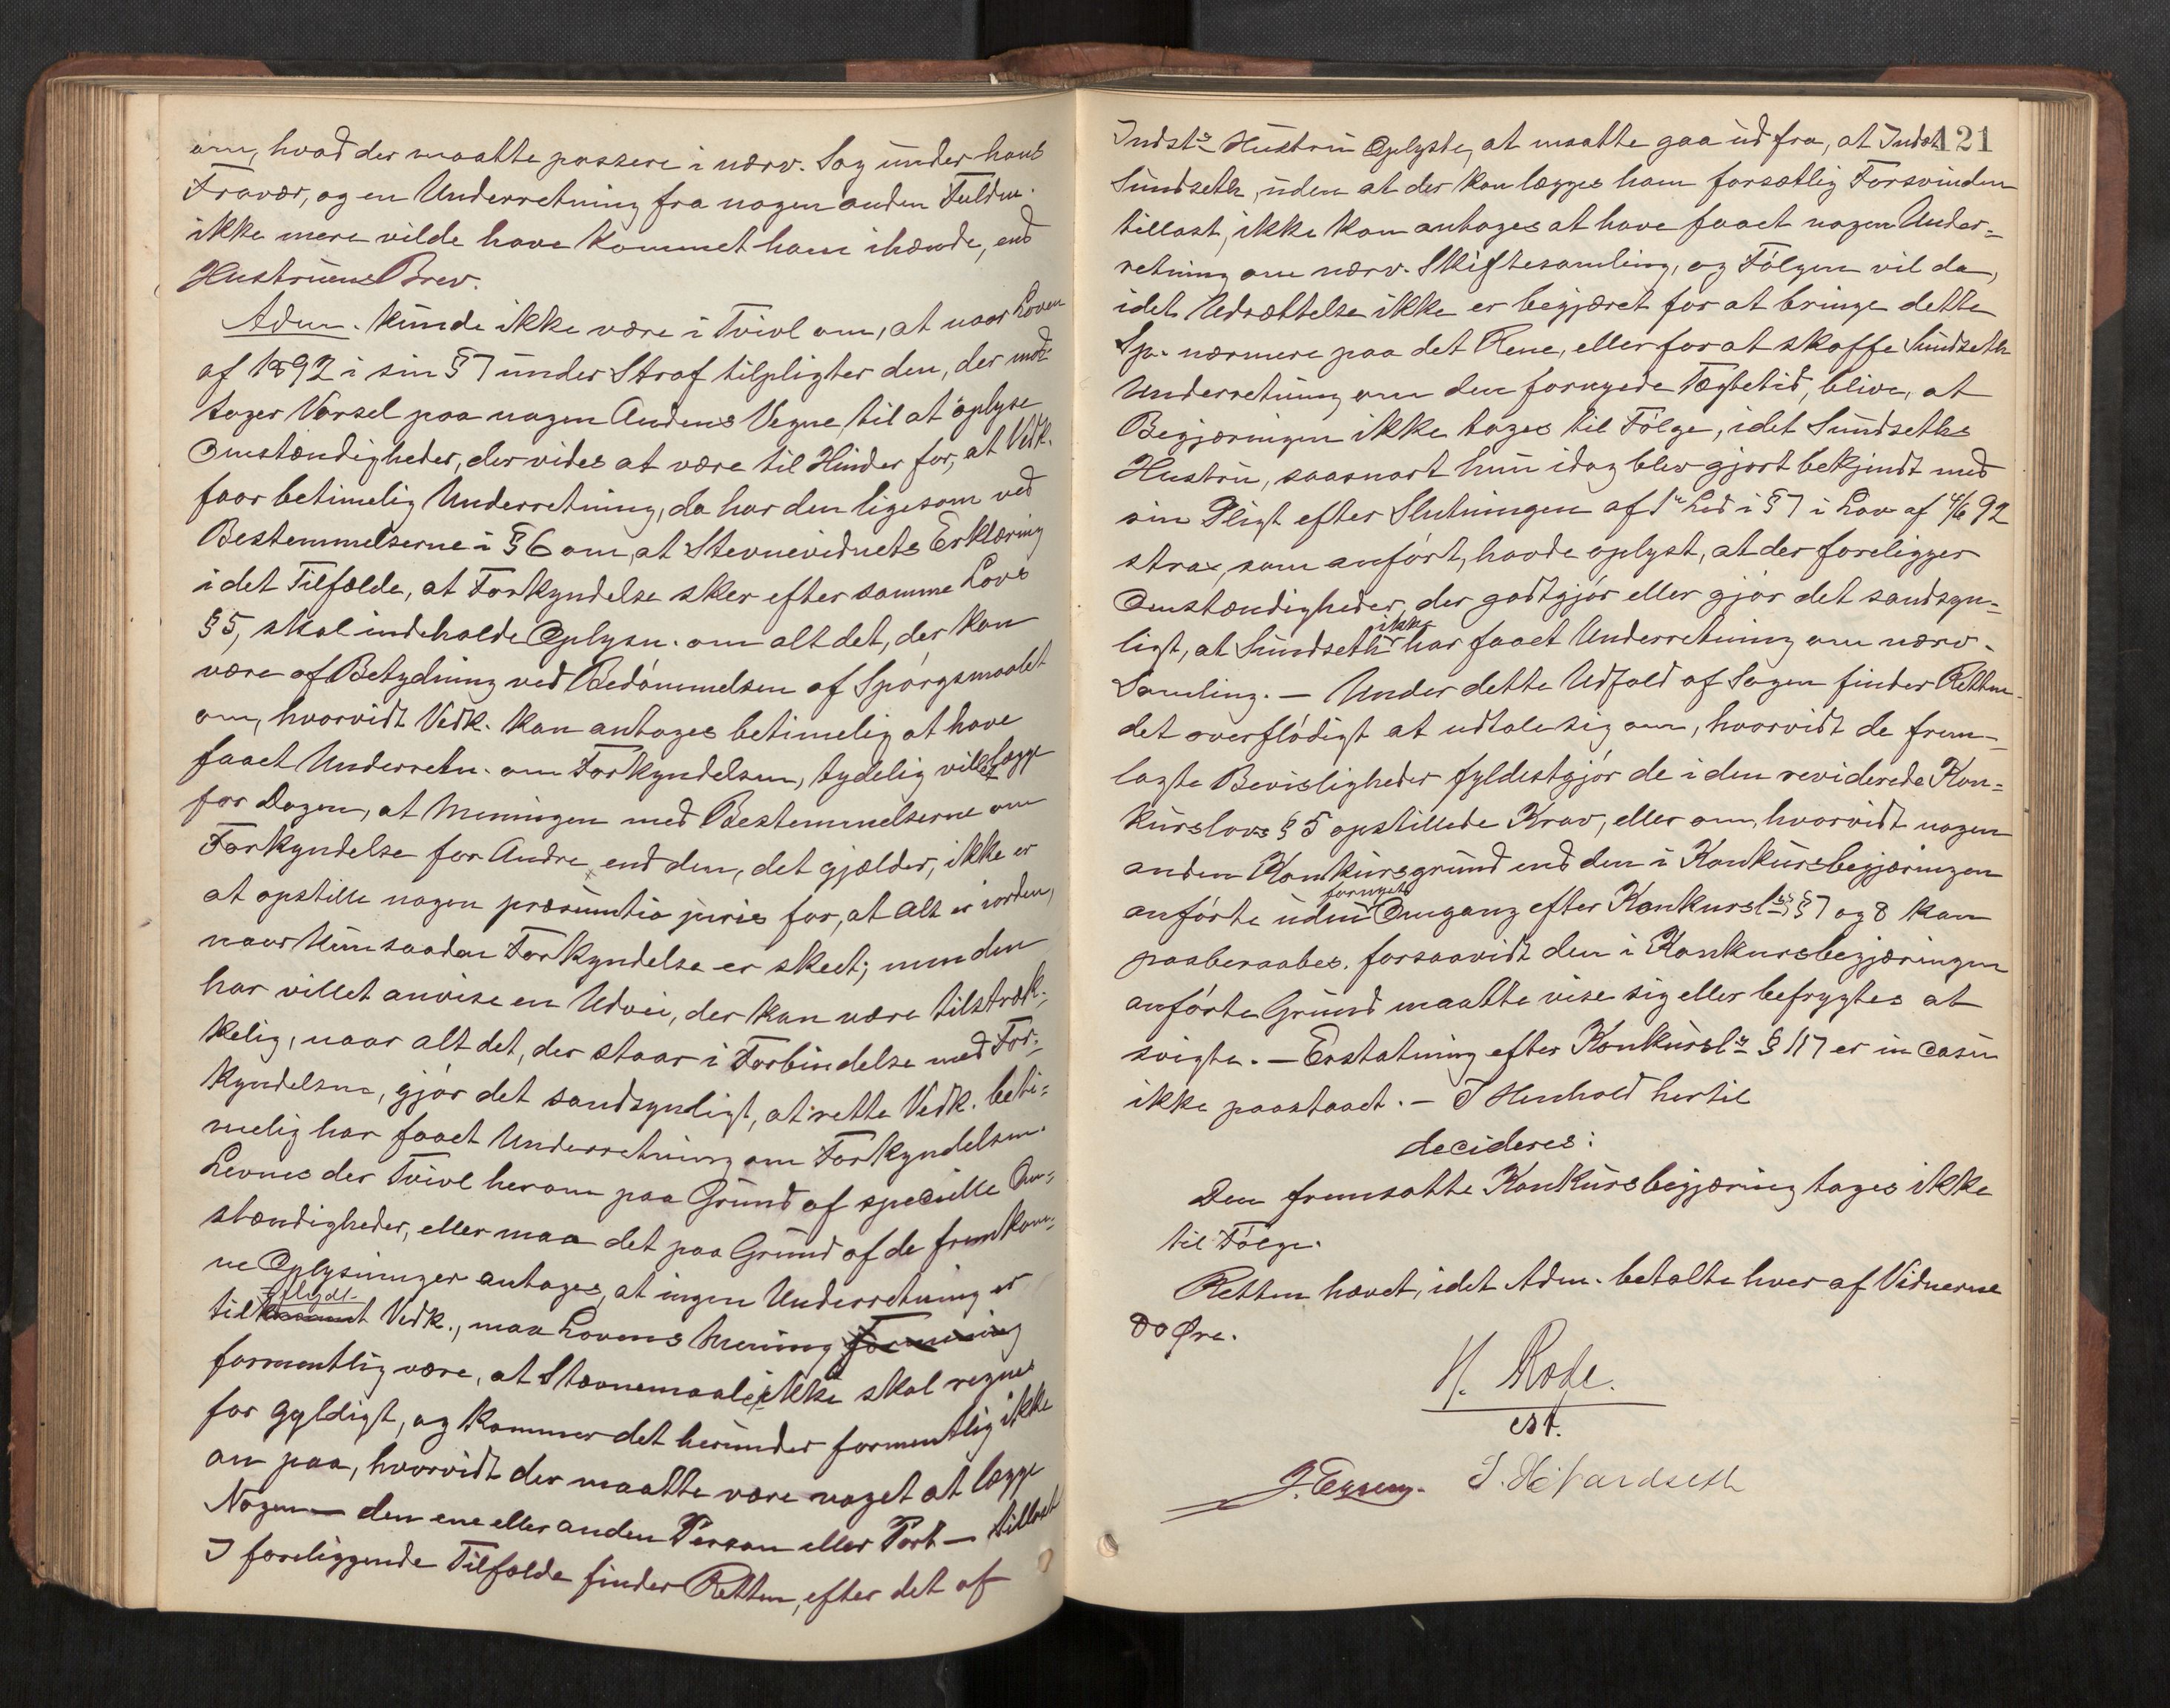 om, hvad der maatte passere i nærv. Sag under hans
Fravær, og en Underretning fra nogen anden Fuldm.
ikke mere vilde have kommet ham ihænde, end
Hustruens Brev.
Adm. kunde ikke være i Tvivl om, at naar Loven
af 1892 i sin § 7 under Straf tilpligter den, der mod-
tager Varsel paa nogen Andens Vegne, til at oplyse
Omstændigheder, der vides at være til Hinder for, at Vedk.
faar betimelig Underretning, da har den ligesom ved
Bestemmelserne i § 6 om, at Stevnevidnets Erklæring
i det Tilfælde, at Forkyndelse sker efter samme Lovs
§ 5, skal indeholde Oplysn. om alt det, der kan
være af Betydning ved Bedømmelsen af Spørgsmaalet
om, hvorvidt Vedk. kan antages betimelig at have
faaet Underretn. om Forkyndelsen, tydelig villet lægge
for Dagen, at Meningen med Bestemmelserne om
Forkyndelse for Andre end den, det gjælder, ikke er
at opstille nogen præsumtio juris for, at alt er iorden,
naar kun saadan Forkyndelse er skeet; men den
har villet anvise en Udvei, der kan være tilstræk-
kelig, naar alt det, der staar i Forbindelse med For-
kyndelsen, gjør det sandsynligt, at rette Vedk. beti-
melig har faaet Underretning om Forkyndelsen.
Levnes der Tvivl herom paa Grund af specielle Om-
stændigheder, eller maa det paa Grund af de fremkom-
ne Oplysninger antages, at ingen Underretning er
tilflydt Vedk., maa Lovens Mening
formentlig være, at Stævnemaalet ikke skal regnes
for gyldigt, og kommer det herunder formentlig ikke
an paa, hvorvidt der maatte være noget at lægge
Nogen — den ene eller anden Person eller Part — tillast
I foreliggende Tilfælde finder Retten, efter det af
121
Indsts Hustru Oplyste, at maatte gaa ud fra, at Indst.
Sundseth, uden at der kan lægges ham forsætlig Forsvinden
tillast, ikke kan antages at have faaet nogen Under-
retning om nærv. Skiftesamling, og Følgen vil da,
idet Udsættelse ikke er begjæret for at bringe dette
Sp. nærmere paa det Rene, eller for at skaffe Sundseth
Underretning om den fornyede Tægtetid, blive, at
Begjæringen ikke tages til Følge, idet Sundseths
Hustru, saasnart hun idag blev gjort bekjendt med
sin Pligt efter Slutningen af 1ste Led i § 7 i Lov af 4/6 92
strax, som anført, havde oplyst, at der foreligger
Omstændigheder, der godtgjør eller gjør det sandsyn-
ligt, at Sundseth ikke har faaet Underretning om nærv.
Samling. — Under dette Udfald af Sagen finder Retten
det overflødigt at udtale sig om, hvorvidt de frem-
lagte Bevisligheder fyldestgjør de i den reviderede Kon-
kurslovs § 5 opstillede Krav, eller om, hvorvidt nogen
anden Konkursgrund end den i Konkursbegjæringen
anførte uden fornyet Omgang efter Konkursls §§ 7 og 8 kan
paaberaabes, forsaavidt den i Konkursbegjæringen
anførte Grund maatte vise sig eller befrygtes at
svigte. — Erstatning efter Konkursls § 117 er in casu
ikke paastaaet. — I Henhold hertil
decideres:
Den fremsatte Konkursbegjæring tages ikke
til Følge.
Retten hævet, idet Adm. betalte hver af Vidnerne
80 Øre.
H. Rode.
cst.